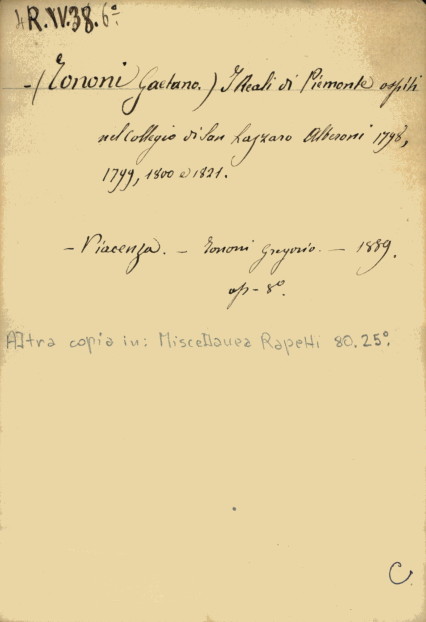 4R.IV.38.6º
- (Tononi Gaetano.) I Reali di Piemonte ospiti
nel Collegio di San Lazzaro Alberoni 1798,
1799, 1800 e 1821.
- Piacenza. - Tononi Gregorio. - 1889.
op - 8º.
Altra copia in: Miscellanea Rapetti 80.25º.
C